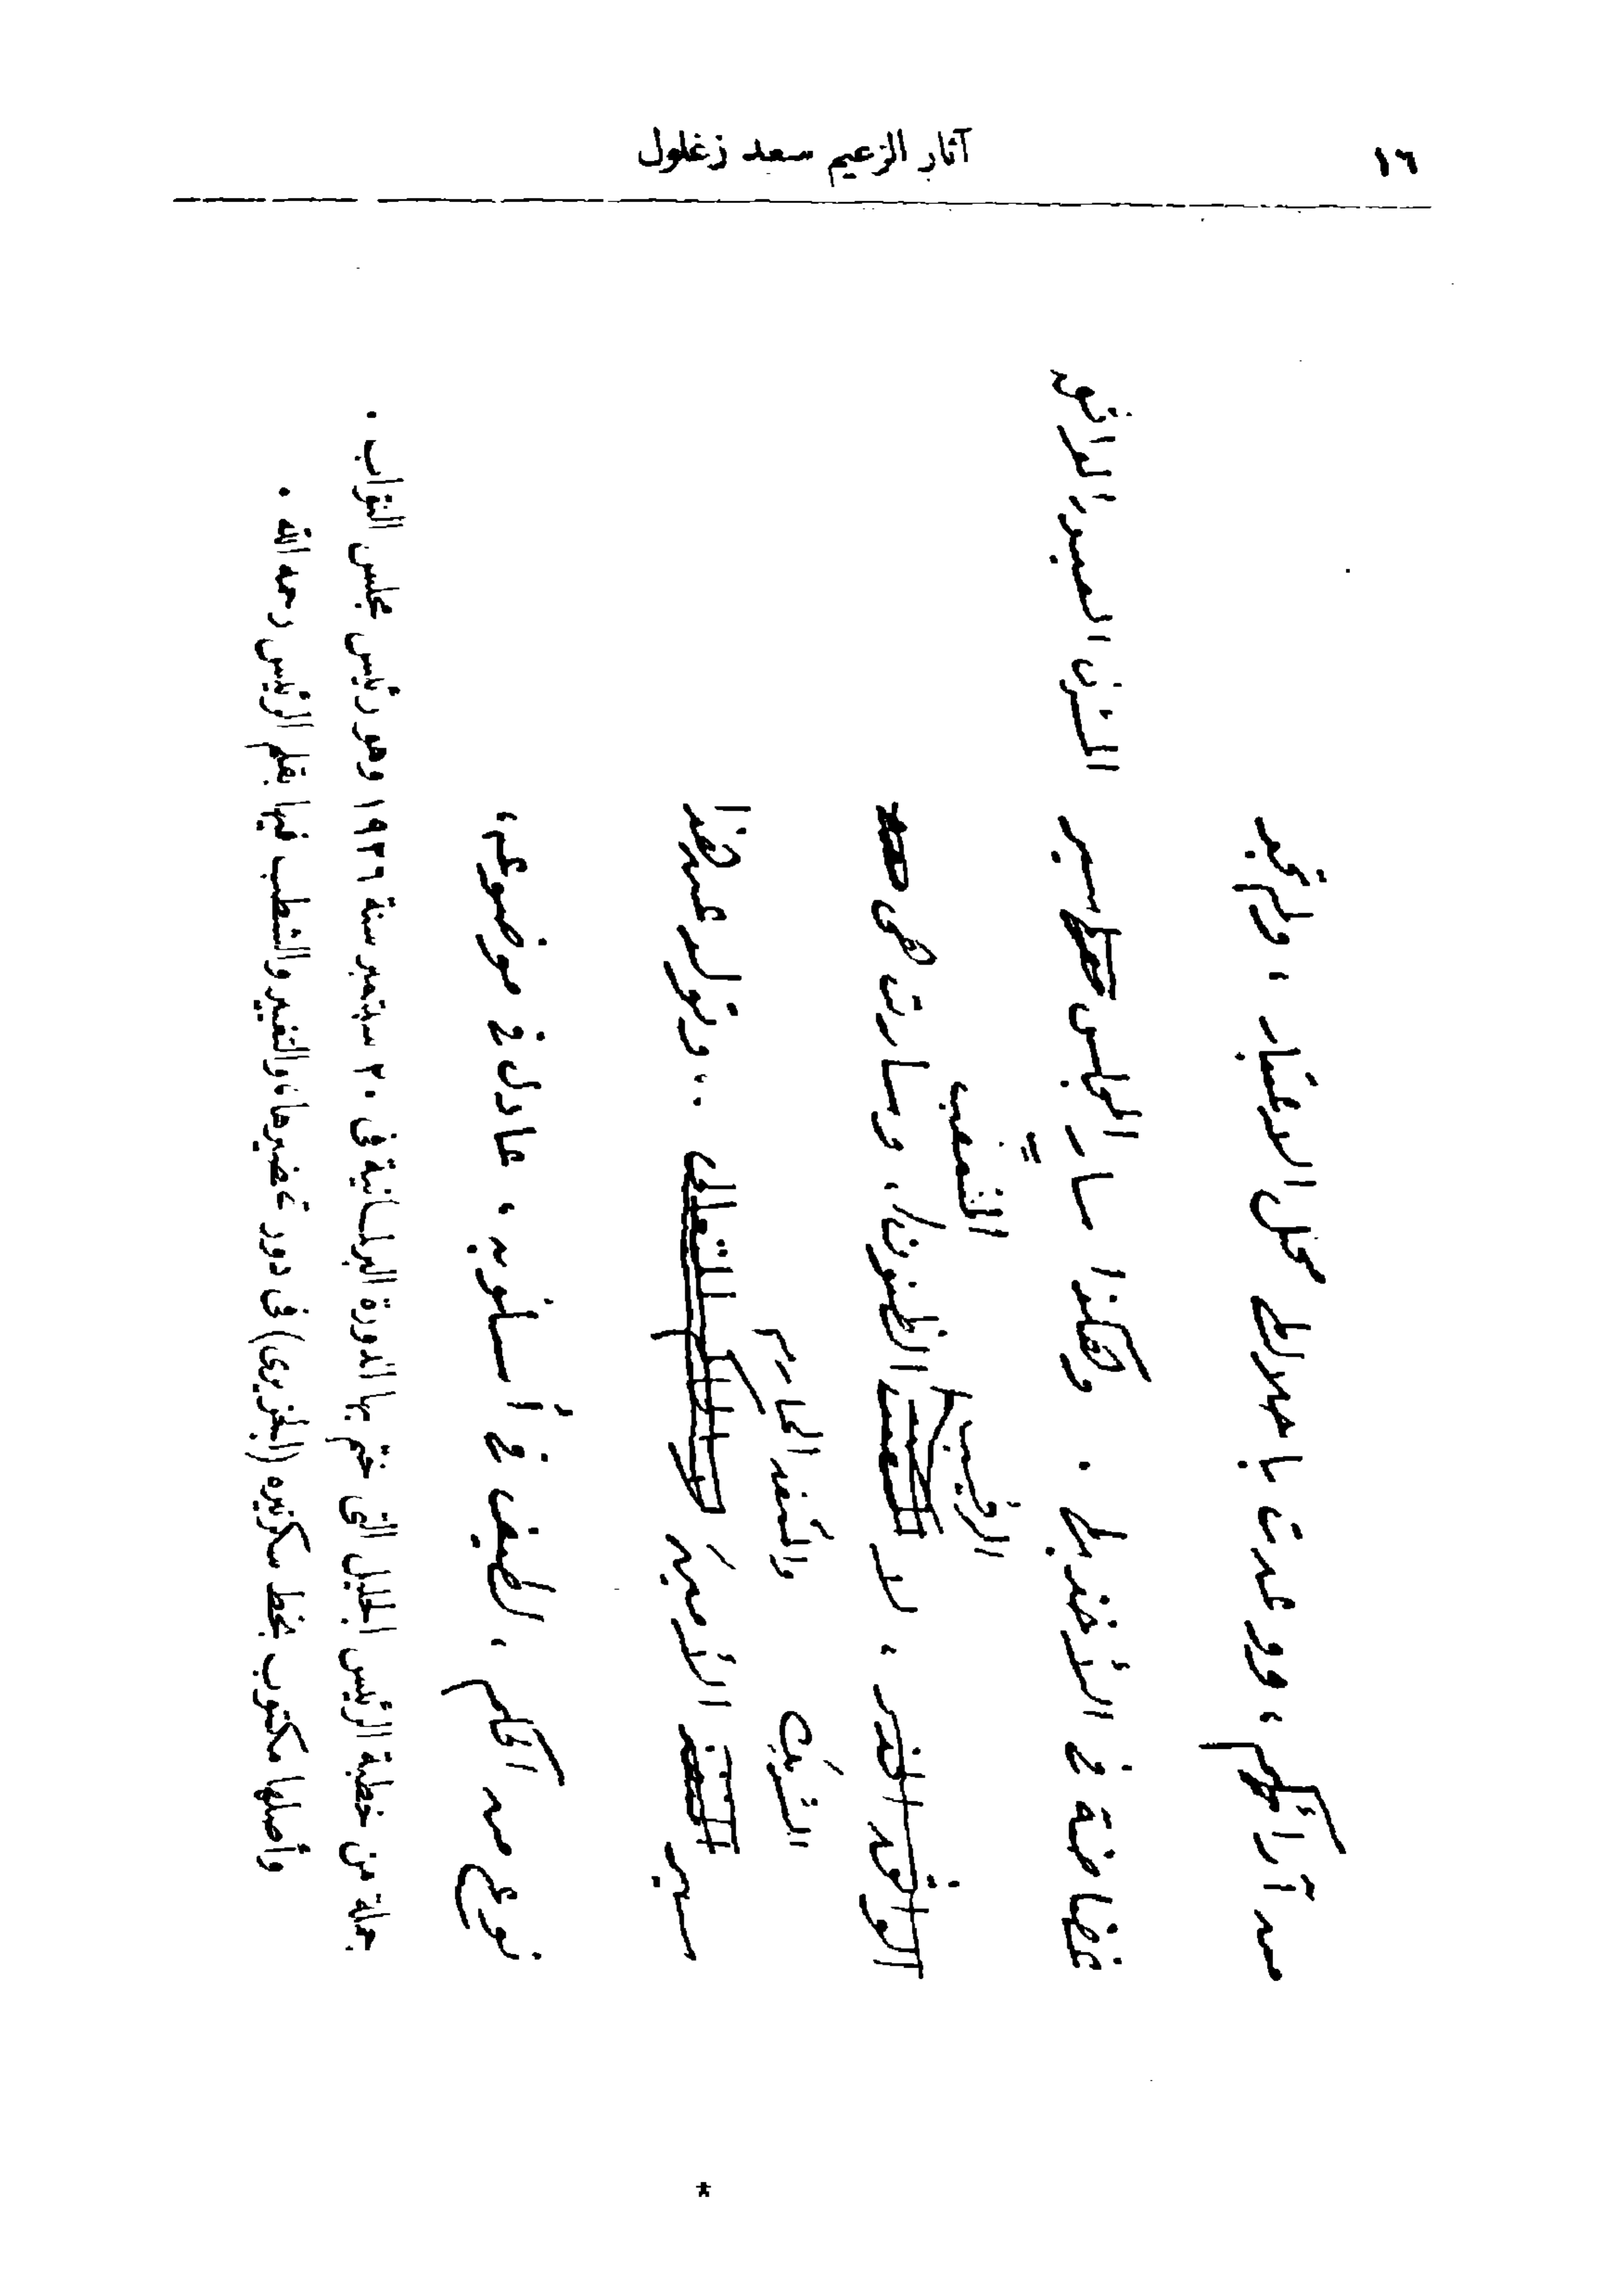 ١٦
آثار الزعيم سعد زغلول
من آرائكم ، ووعدت باحلالها محل الاعتبار ، ولم تجد
غضاضة فى الأخذ بها . وهكذا سار المجلس سير المتزن الصبور الواثق
المتعنت
الواثق القدر ، لا الظنون ، وسارت
الشريك والمنفذ الحازم
سير الأمين .. وتولد عن هذا
نوع من الحكم ، لطيف فى أسلوبه ، عادل فى موضوعه ،
جملة من خطبة الرئيس الجليل التى ختم بها الدورة البرلمانية فى ٢٠ سبتمبر سنة ١٩٢٦ وهو رئيس مجلس النواب .
وأصلها مكتوب بخط سكرتيره (الجزيرى) فى دور تحضيرها، والتغيير والشطب فيها بقلم الرئيس رحمه الله .
*